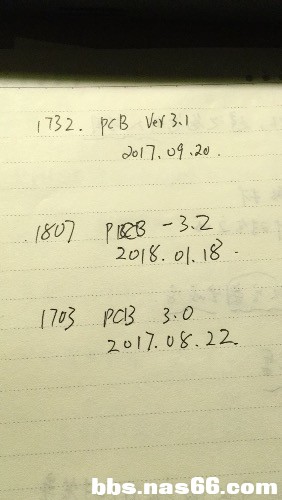 1732. PCB Ver 3.1
2017.09.20.
1807 PCB -3.2
2018.01.18.
1703 PCB 3.0
2017.08.22.
bbs.nas66.com